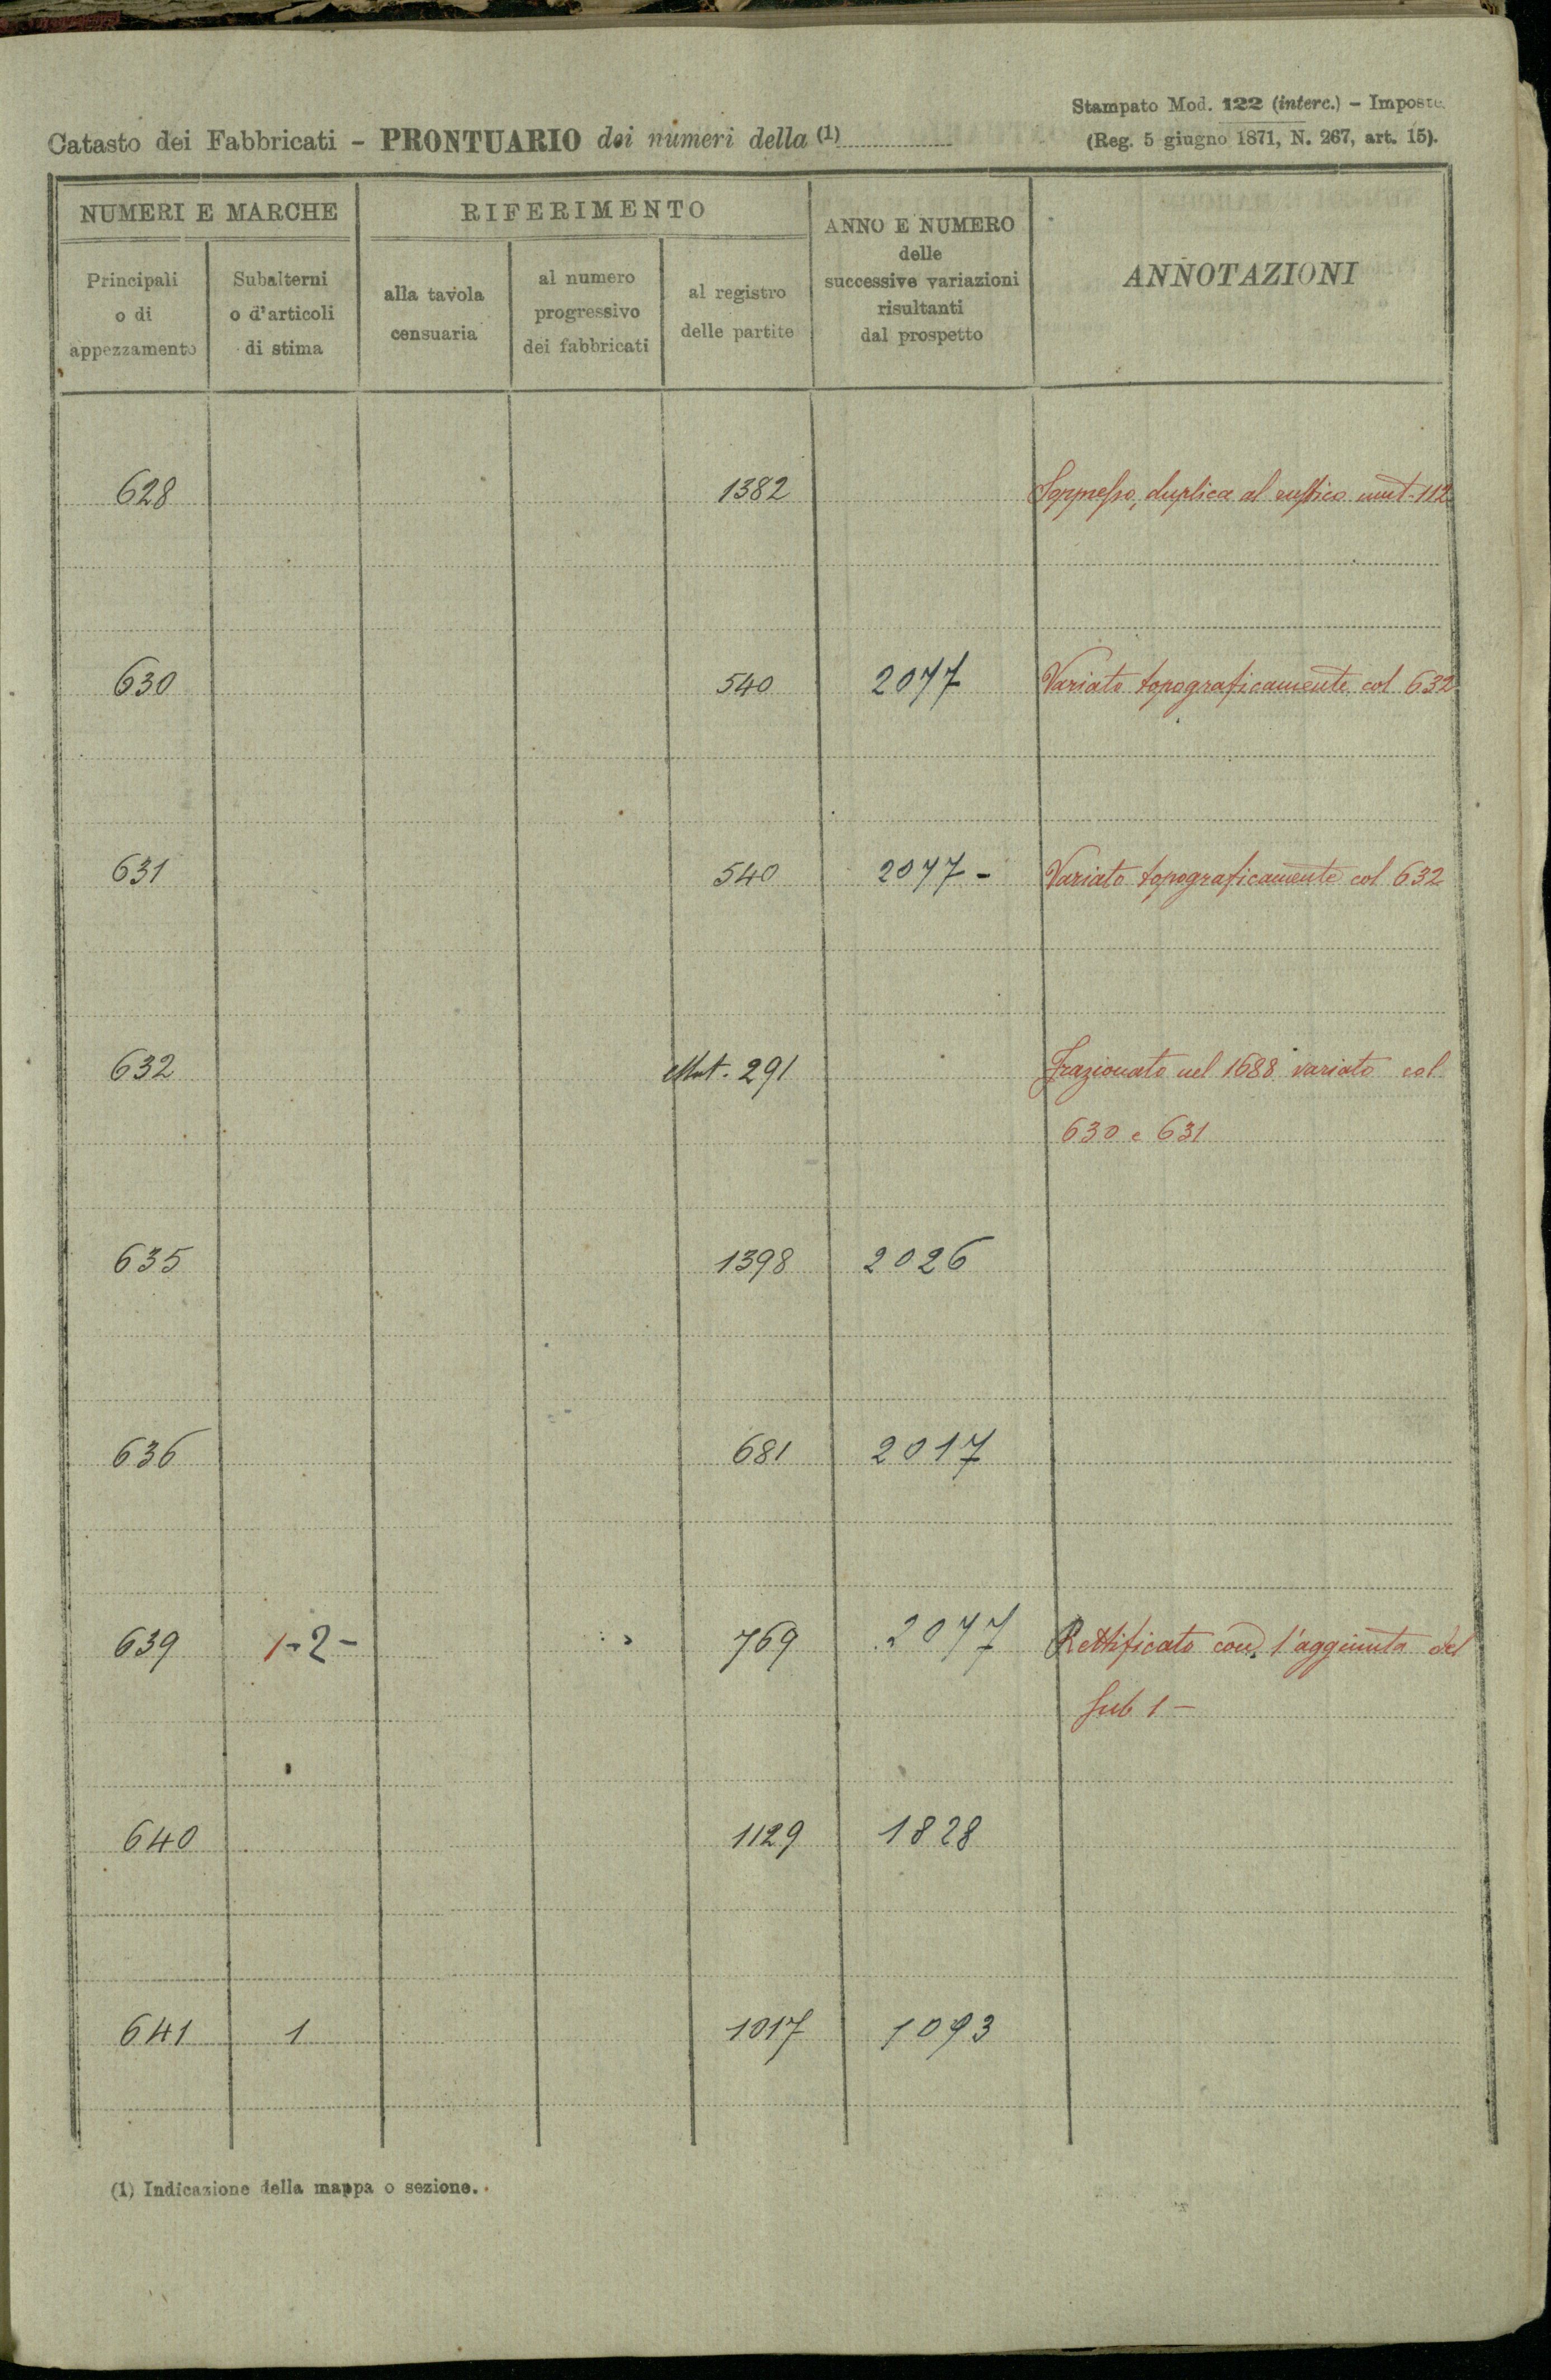 Stampato Mod. 122 (interc.) - Imposte.
Catasto dei Fabbricati - PRONTUARIO dei numeri della (1)
(Reg. 5 giugno 1871, N. 267, art. 15).
NUMERI E MARCHE
RIFERIMENTO
ANNO E NUMERO
delle
successive variazioni
risultanti
dal prospetto
ANNOTAZIONI
Principali
o di
appezzamento
Subalterni
o d'articoli
di stima
alla tavola
censuaria
al numero
progressivo
dei fabbricati
al registro
delle partite
628 1382 Soppresso, duplica al rustico mut. 112
630 540 2077 Variato topograficamente col 632
631 540 2077 - Variato topograficamente col 632
632 Mut. 291 Frazionato nel 1688 variato col
630 e 631
635 1398 2026
636 681 2017
639 1-2- 769 2077 Rettificato con l'aggiunta del
sub 1 -
640 1129 1828
641 1 1017 1093
(1) Indicazione della mappa o sezione.